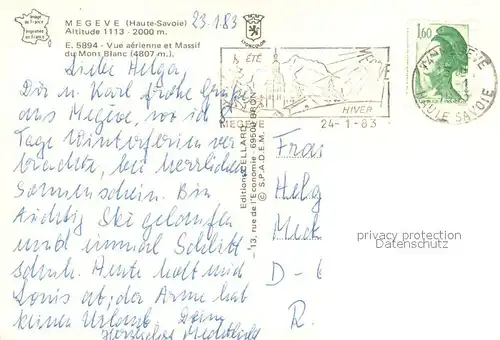 image de France
imprimée en France
MEGEVE (Haute-Savoie) 23.1.83
Altitude 1113 - 2000 m.
E. 5894 - Vue aérienne et Massif
du Mont Blanc (4807 m.)
Liebe Helga
Dir u. Karl frohe Grüße
aus Megève, wo ich
Tage Winterferien ver
brachte, bei herrlichem
Sonnenschein. Bin
tüchtig Ski gelaufen
und einmal Schlitt
schuh. Heute holt mich
Louis ab, der Arme hat
keinen Urlaub. Deine
Herzlichst
Editions CELLARD
13, rue de l'Economie 69500 BRON
© S.P.A.D.E.M.
ÉTÉ
HIVER
MEGEVE 24-1-83
1,60
HAUTE SAVOIE
Frau
Helg
Meck
D-
R.
privacy protection
Datenschutz